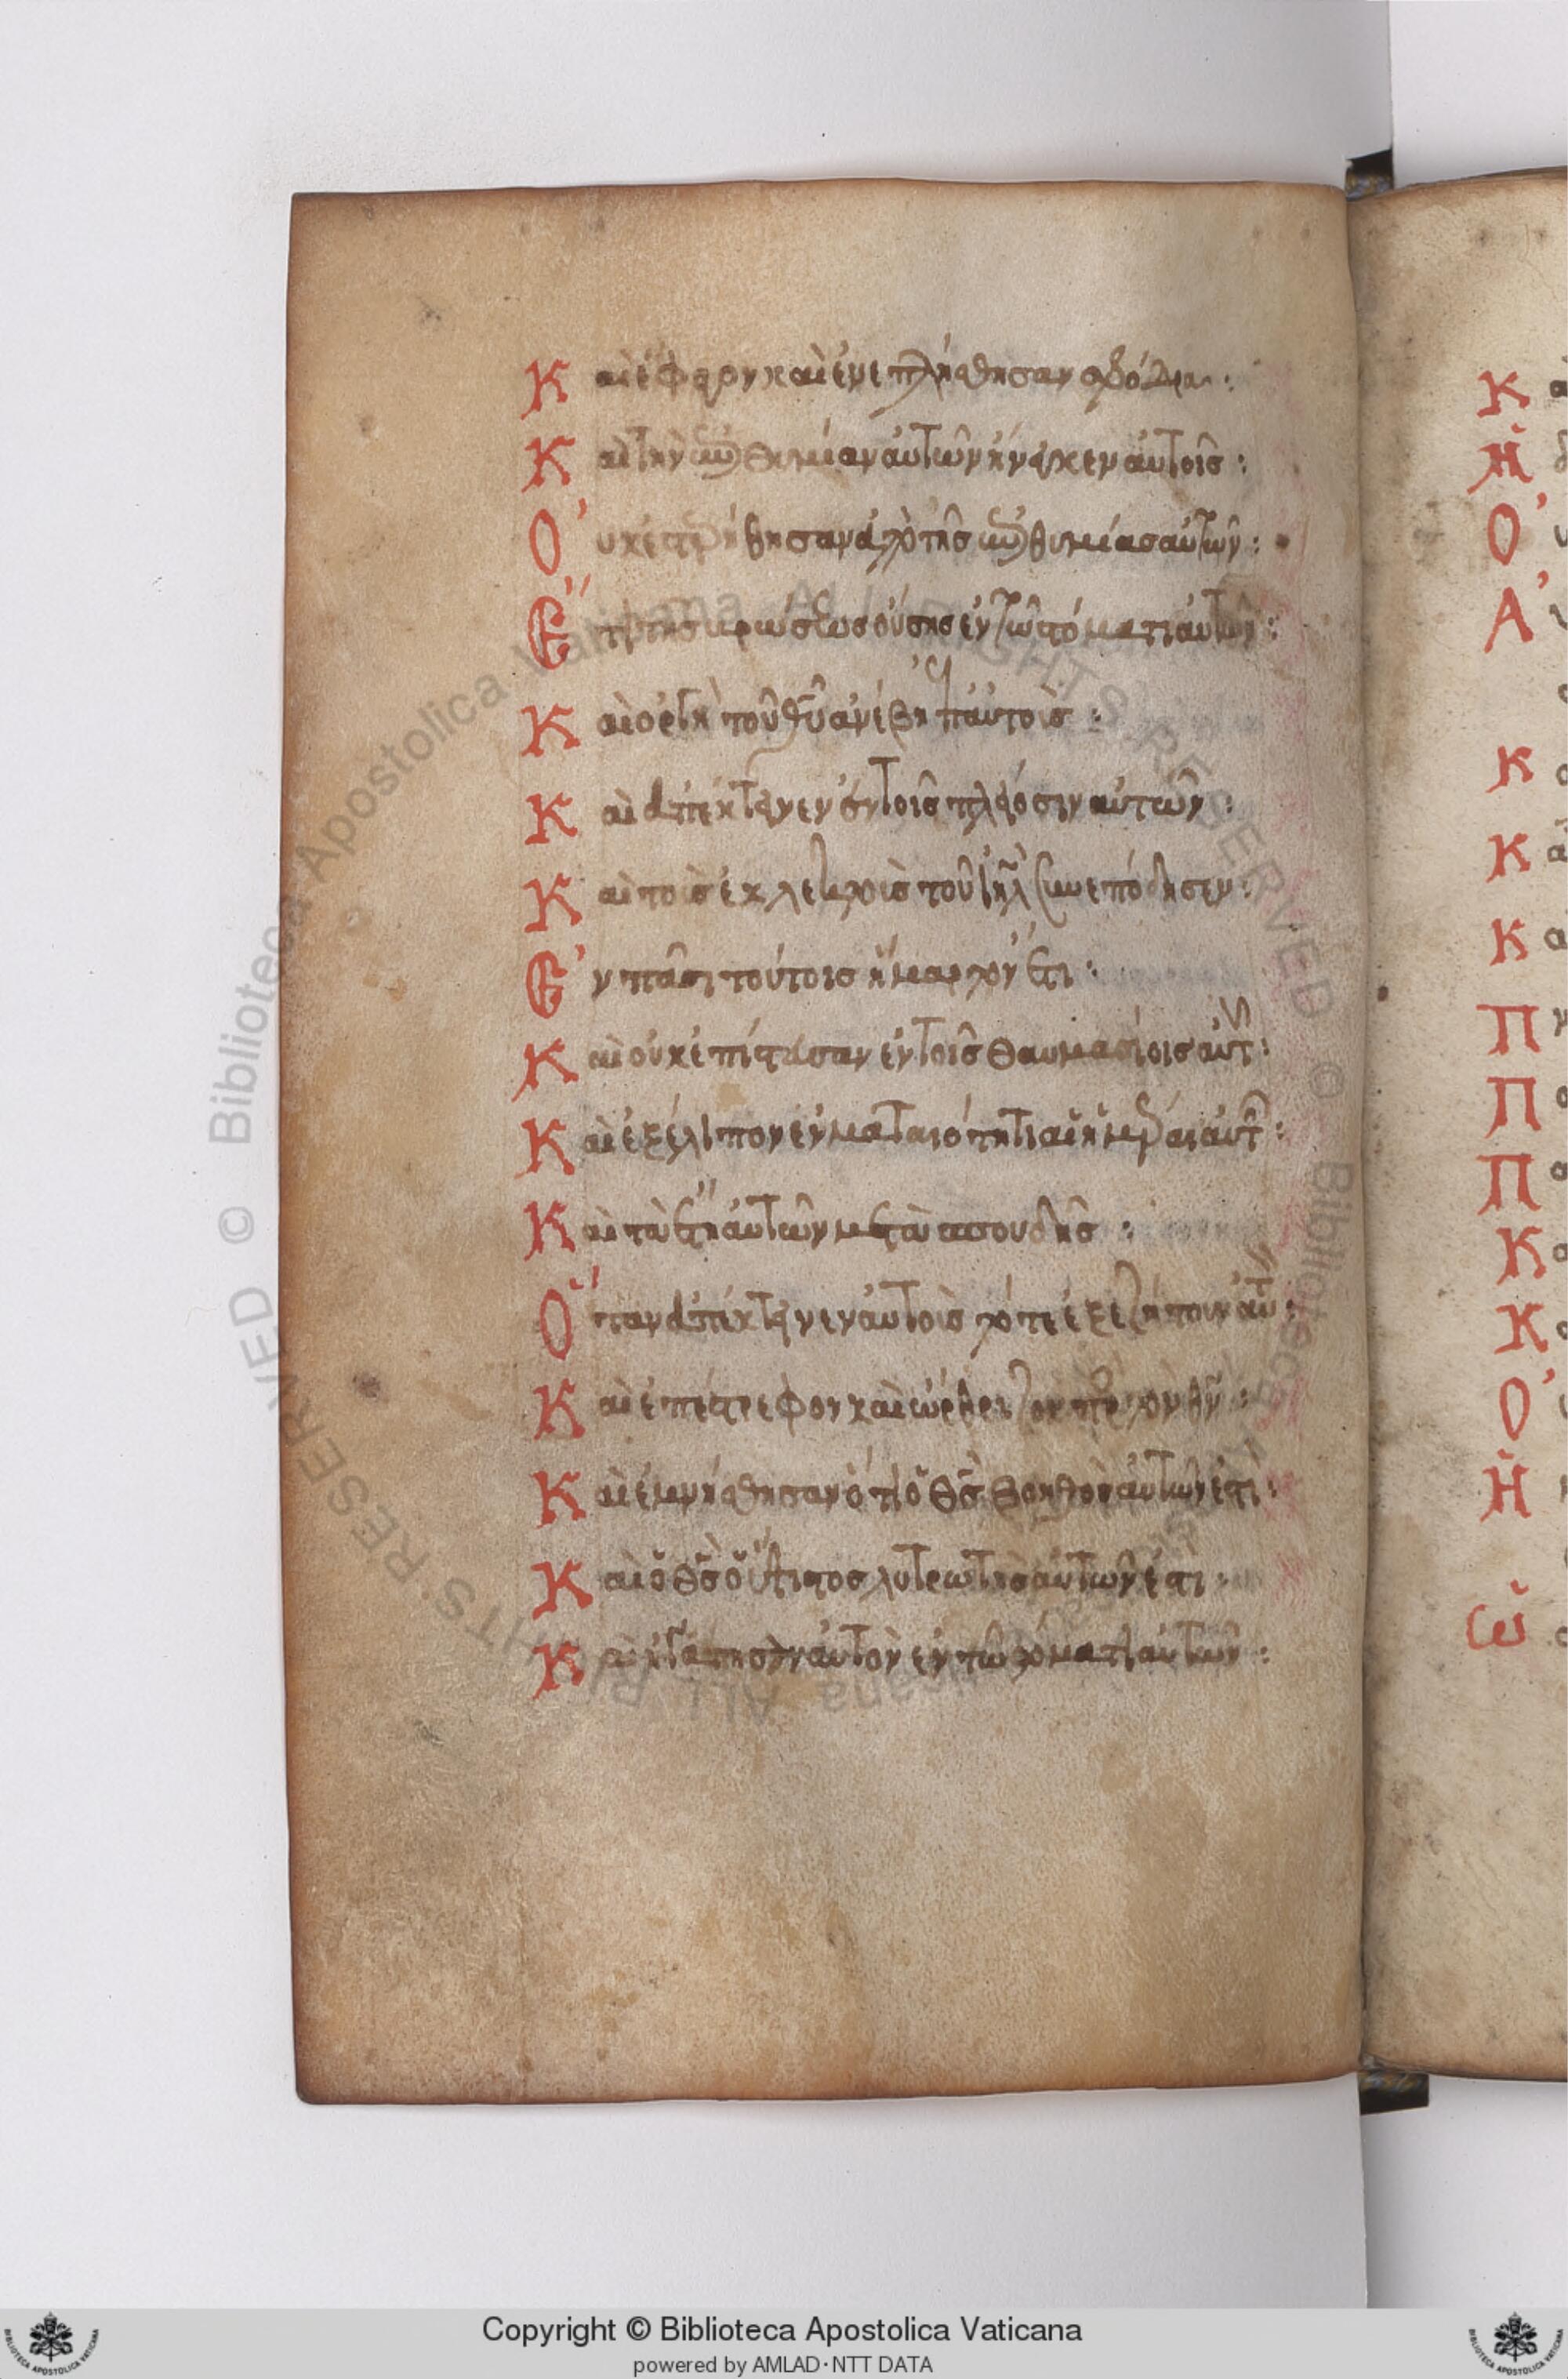 Καὶ ἔφαγον καὶ ἐνεπλήσθησαν σφόδρα :
Καὶ τὴν ἐπιθυμίαν αὐτῶν ἤνεγκεν αὐτοῖς :
Οὐκ ἐστερήθησαν ἀπὸ τῆς ἐπιθυμίας αὐτῶν :
Ἔτι τῆς βρώσεως οὔσης ἐν τῶ στόματι αὐτῶν :
Καὶ ὀργὴ τοῦ θῦ ἀνέβη ἐπ αὐτοὺς :
Καὶ ἀπέκτεινεν ἐν τοῖς πλείοσιν αὐτῶν :
Καὶ τοὺς ἐκλεκτοὺς τοῦ ιηλ συνεπόδησεν :
Ἐν πᾶσι τούτοις ἥμαρτον ἔτι :
Καὶ οὐκ ἐπίστευσαν ἐν τοῖς θαυμασίοις αὐτ :
Καὶ ἐξέλιπον ἐν ματαιότητι αἱ ἡμέραι αὐτ :
Καὶ τὰ ἔτη αὐτῶν μετὰ σπουδῆς :
Ὅταν ἀπέκτεινεν αὐτοὺς τότε ἐξεζήτουν αὐτ :
Καὶ ἐπέστρεφον καὶ ὤρθριζον πρὸς τὸν θν :
Καὶ ἐμνήσθησαν ὅτι ὁ θς βοηθὸς αὐτῶν ἐστι :
Καὶ ὁ θς ὁ ὕψιστος λυτρωτὴς αὐτῶν ἐστι :
Καὶ ἠγάπησαν αὐτὸν ἐν τῶ στόματι αὐτῶν :
Copyright © Biblioteca Apostolica Vaticana
powered by AMLAD·NTT DATA